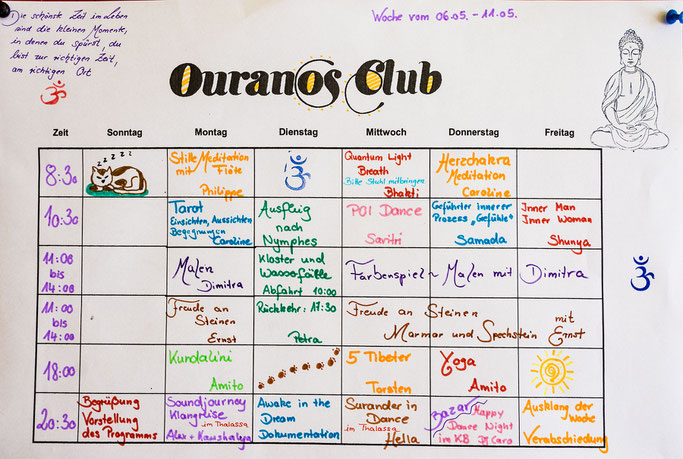 Die schönste Zeit im Leben
sind die kleinen Momente,
in denen du spürst, du
bist zur richtigen Zeit,
am richtigen Ort
Woche vom 06.05. - 11.05.
Ouranos Club
Zeit Sonntag Montag Dienstag Mittwoch Donnerstag Freitag
8:30
zzzz
Stille Meditation
mit Flöte
Philippe
Quantum Light
Breath
Bitte Stuhl mitbringen
Bhakti
Herzchakra
Meditation
Caroline
10:30
Tarot
Einsichten, Aussichten
Begegnungen
Caroline
Ausflug
nach
Nymphes
Kloster und
Wasserfälle
Abfahrt 10:00
Rückkehr: 17:30
Petra
POI Dance
Savitri
Geführter innerer
Prozess „Gefühle“
Samada
Inner Man
Inner Woman
Shunya
11:00
bis
14:00
Malen
Dimitra
Farbenspiel ~ Malen mit Dimitra
11:00
bis
14:00
Freude an
Steinen
Ernst
Freude an Steinen mit
Marmor und Speckstein Ernst
18:00
Kundalini
Amito
5 Tibeter
Torsten
Yoga
Amito
20:30
Begrüßung
Vorstellung
des Programms
Soundjourney
Klangreise
im Thalassa
Alex + Kaushalya
Awake in the
Dream
Dokumentation
Surander in
Dance
im Thalassa
Hella
Bazar
Happy
Dance Night
im KB Dj Caro
Ausklang der
Woche
Verabschiedung